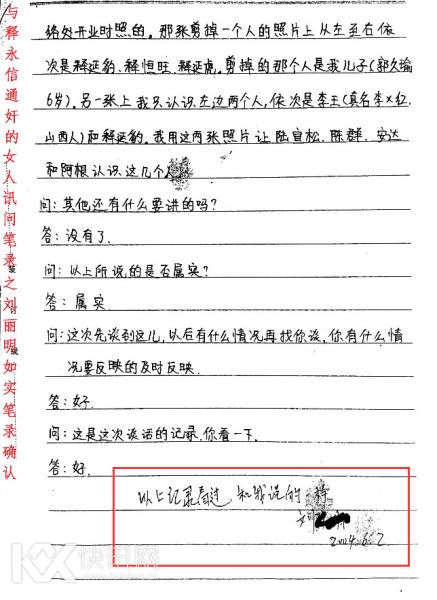 与释永信通奸的女人讯问笔录之刘丽明如实笔录确认
络处开业时照的。那张剪掉一个人的照片上从左至右依
次是释延豹、释恒旺、释延虎。剪掉的那个人是我儿子(郭久瑜
6岁)。另一张上我只认识左边两个人,依次是李王(真名李×红.
山西人)和释延豹。我用这两张照片让陆宣松、陈群、安达
和阿根认识这几个人
问:其他还有什么要讲的吗?
答:没有了.
问:以上所说的是否属实?
答:属实.
问:这次先谈到这儿,以后有什么情况再找你谈,你有什么情
况要反映的及时反映.
答:好.
问:这是这次谈话的记录,你看一下.
答:好.
以上记录看过,和我说的一样
刘
2004.6.2
快讯网